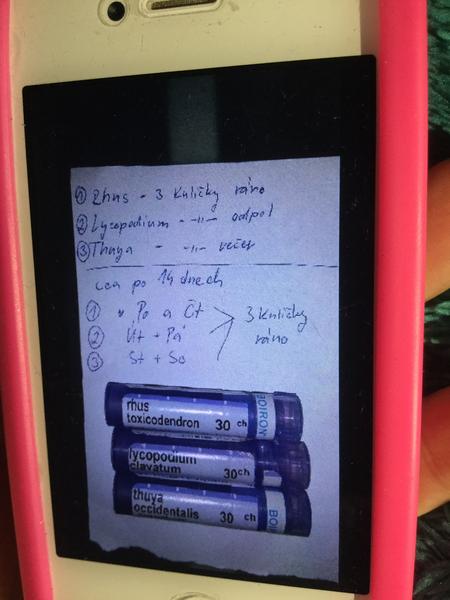 ① Rhus - 3 kuličky ráno
② Lycopodium - -||- odpol
③ Thuya - -||- večer
cca po 14 dnech
① Po a Čt
② Út + Pá
③ St + So
3 kuličky
ráno
rhus
toxicodendron 30 ch
BOIRON
lycopodium
clavatum 30 ch
thuya
occidentalis 30 ch
BOI